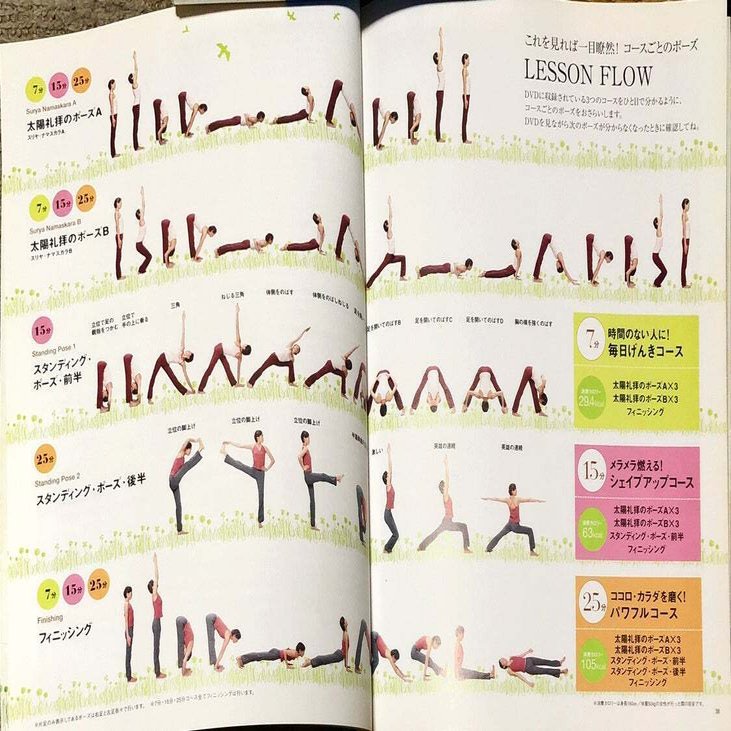 これを見れば一目瞭然！ コースごとのポーズ
LESSON FLOW
DVDに収録されている3つのコースをひと目で分かるように、
コースごとのポーズをおさらいします。
DVDを見ながら次のポーズが分からなくなったときに確認してね。
7分 15分 25分
Surya Namaskara A
太陽礼拝のポーズA
スリヤ・ナマスカラA
7分 15分 25分
Surya Namaskara B
太陽礼拝のポーズB
スリヤ・ナマスカラB
15分
Standing Pose 1
スタンディング・
ポーズ・前半
立位で足の
親指をつかむ
立位で
手の上に乗る
三角
ねじる三角
体側をのばす
体側をのばしねじる
足を開いてのばすB
足を開いてのばすC
足を開いてのばすD
脇の横を強くのばす
25分
Standing Pose 2
スタンディング・ポーズ・後半
立位の脚上げ
立位の脚上げ
立位の脚上げ
激しい
英雄の連続
英雄の連続
7分 15分 25分
Finishing
フィニッシング
7分
時間のない人に！
毎日げんきコース
消費カロリー
太陽礼拝のポーズA×3
太陽礼拝のポーズB×3
フィニッシング
15分
メラメラ燃える！
シェイプアップコース
消費カロリー
63kcal
太陽礼拝のポーズA×3
太陽礼拝のポーズB×3
スタンディング・ポーズ・前半
フィニッシング
25分
ココロ・カラダを磨く！
パワフルコース
消費カロリー
105kcal
太陽礼拝のポーズA×3
太陽礼拝のポーズB×3
スタンディング・ポーズ・前半
スタンディング・ポーズ・後半
フィニッシング
※7分・15分・25分コース全てフィニッシングは同じです。